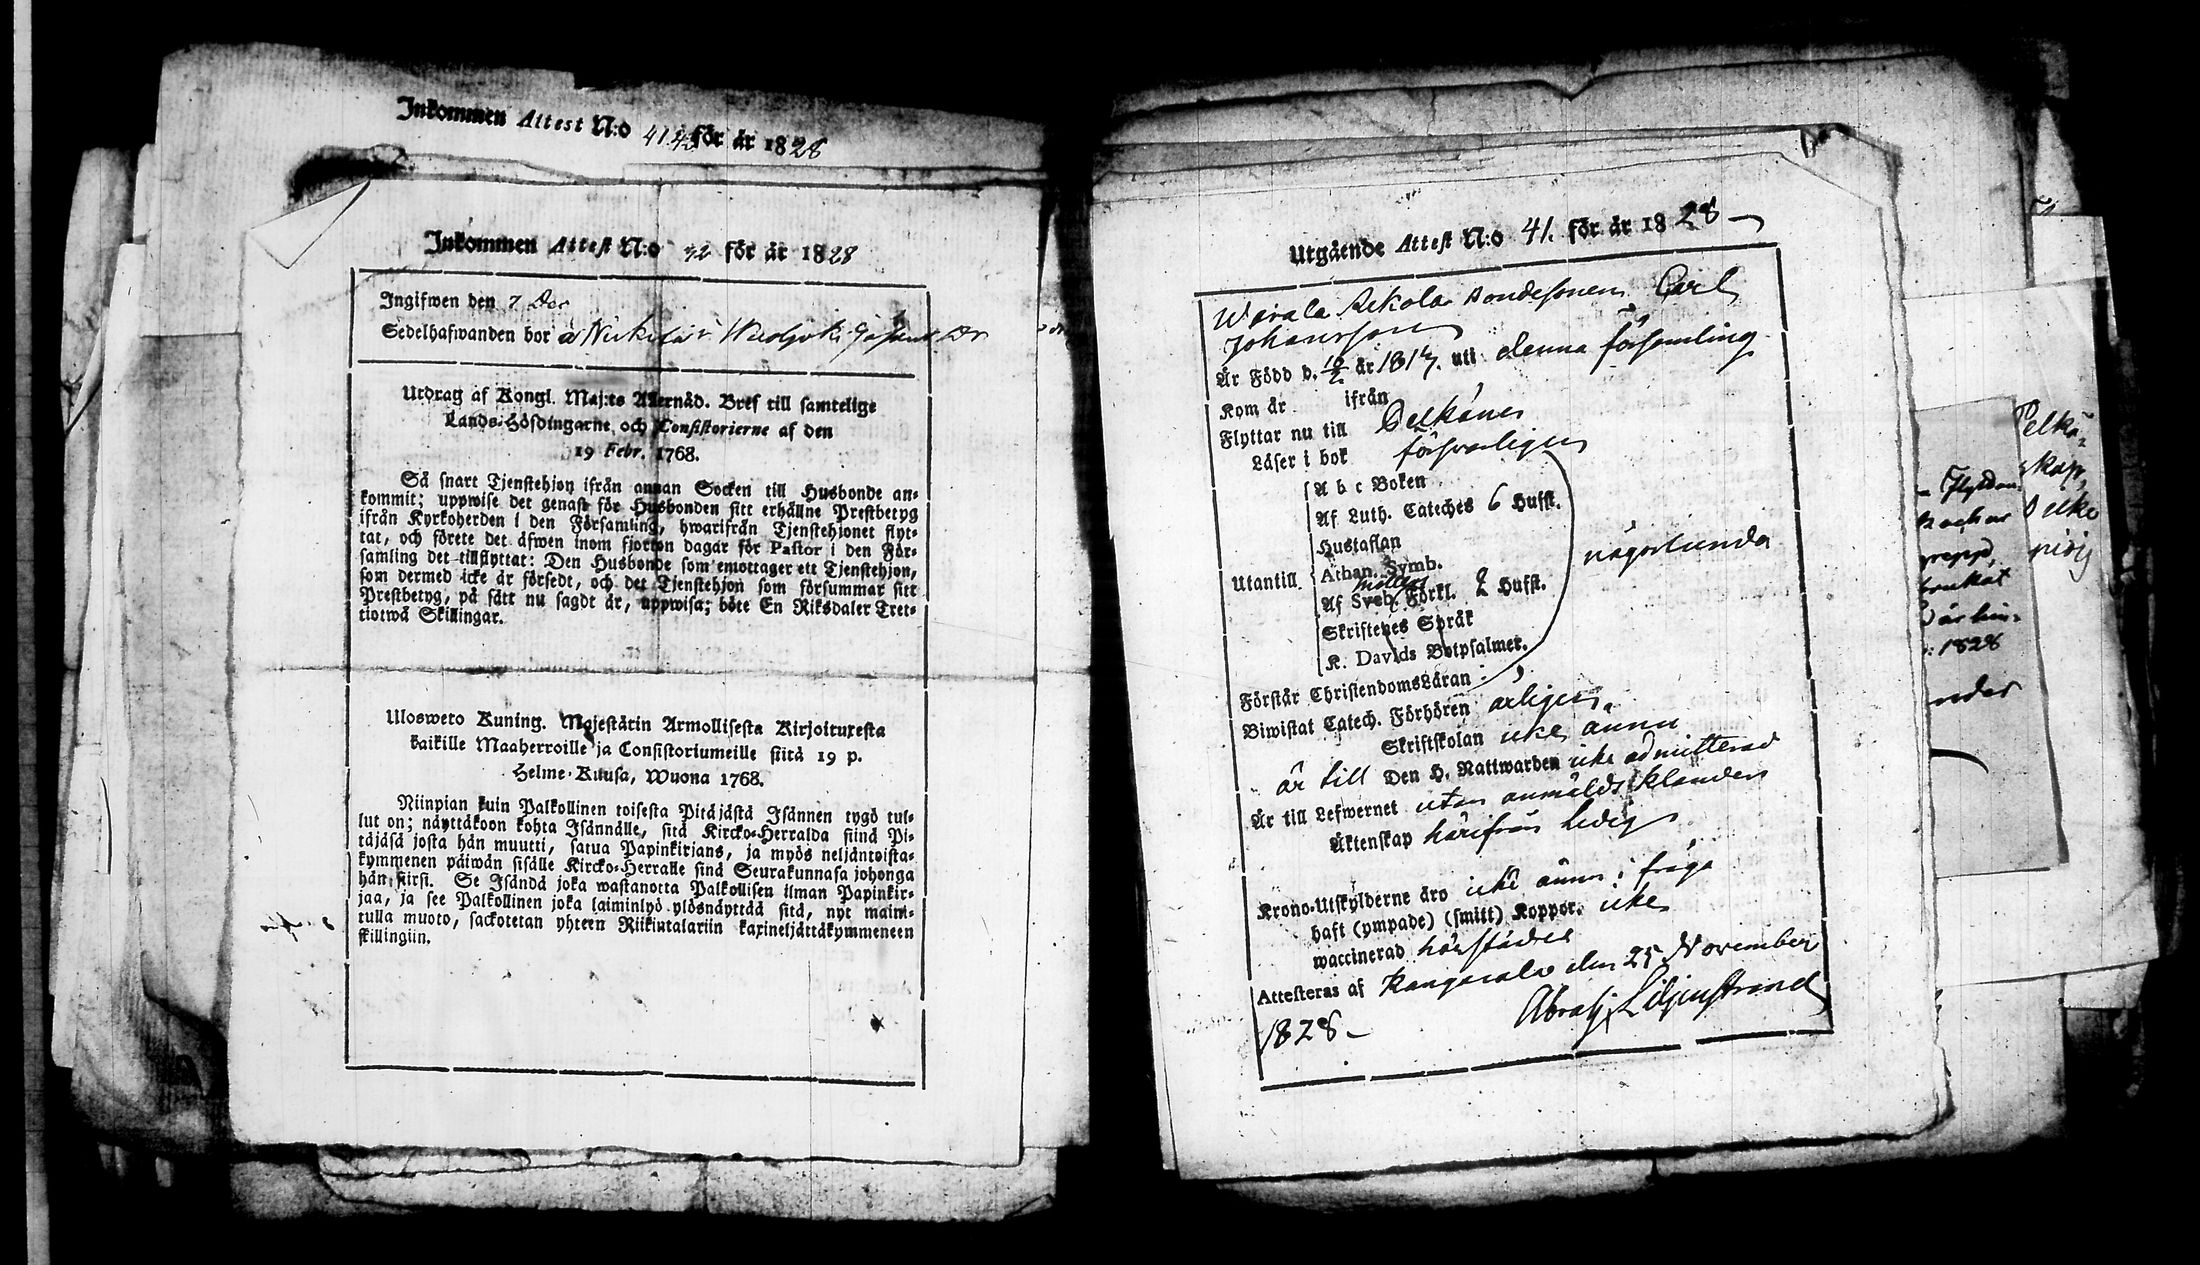 Inkommen Attest N:o 41.43 för år 1828
Inkommen Attest N:o 42 för år 1828
Ingifwen den 7 Dec
Sedelhafwanden bor å
Utdrag af Kongl. Maj:ts Allernåd. Bref till samtelige
Lands-Höfdingarne och Consistorierne af den
19 Febr. 1768.
Så snart Tjenstehjon ifrån annan Socken till Husbonde an-
kommit; uppwise det genast för Husbonden sitt erhållne Prestbetyg
ifrån Kyrkoherden i den Församling, hwarifrån Tjenstehjonet flyt-
tat, och förete det äfwen inom fjorton dagar för Pastor i den För-
samling det tillflyttat: Den Husbonde som emottager ett Tjenstehjon,
som dermed icke är försedt, och det Tjenstehjon som försummar sitt
Prestbetyg, på sätt nu sagdt är, uppwisa; böte En Riksdaler Tret-
tiotwå Skillingar.
Ulosweto Kuning. Majestätin Armollisesta Kirjoituxesta
kaikille Maaherroille ja Consistoriumeille siitä 19 p.
Helme-Kuusa, Wuona 1768.
Niinpian kuin Palkollinen toisesta Pitäjästä Isännen tygö tul-
lut on; näyttäkoon kohta Isännälle, sitä Kircko-Herralda siinä Pi-
täjäsä josta hän muutti, saatua Papinkirjans, ja myös neljäntoista-
kymmenen päiwän sisälle Kircko-Herralle siinä Seurakunnasa johonga
hän siirsi. Se Isändä joka wastanotta Palkollisen ilman Papinkir-
jaa, ja see Palkollinen joka laiminlyö ylösnäyttää sitä, nyt maini-
tulla muoto, sackotetan yhteen Riikintalariin kaxineljättäkymmeneen
skillingiin.
Utgående Attest N:o 41. för år 1828
Werala Rekola Bondesonen Carl
Johansson
Är Född d. 10/2 år 1817. uti denna församling
Kom år ifrån
Flyttar nu till Pelkäne
Läser i bok försvarligen
Utantill
A b c Boken
Af Luth. Cateches 6 Hufst.
Hustaflan
Athan. Symb.
Möllers
Af Sveb. Förkl. 2 Hufst.
Skriftenes Språk
K. Davids Botpsalmer.
någorlunda
Förstår ChristendomsLäran
Biwistat Catech. Förhören årligen
Skriftskolan icke ännu
är till Den H. Nattwarden icke admitterad
Är till Lefwernet utan anmäldt klander
Äktenskap härifrån ledig
Krono-Utskylderne äro icke ännu i fråga
haft (ympade) (smitt) Koppor. icke
waccinerad härstädes
Attesteras af Kangasala den 25 November
1828 Abrah. Liljenstrand
Pelkä-
1828